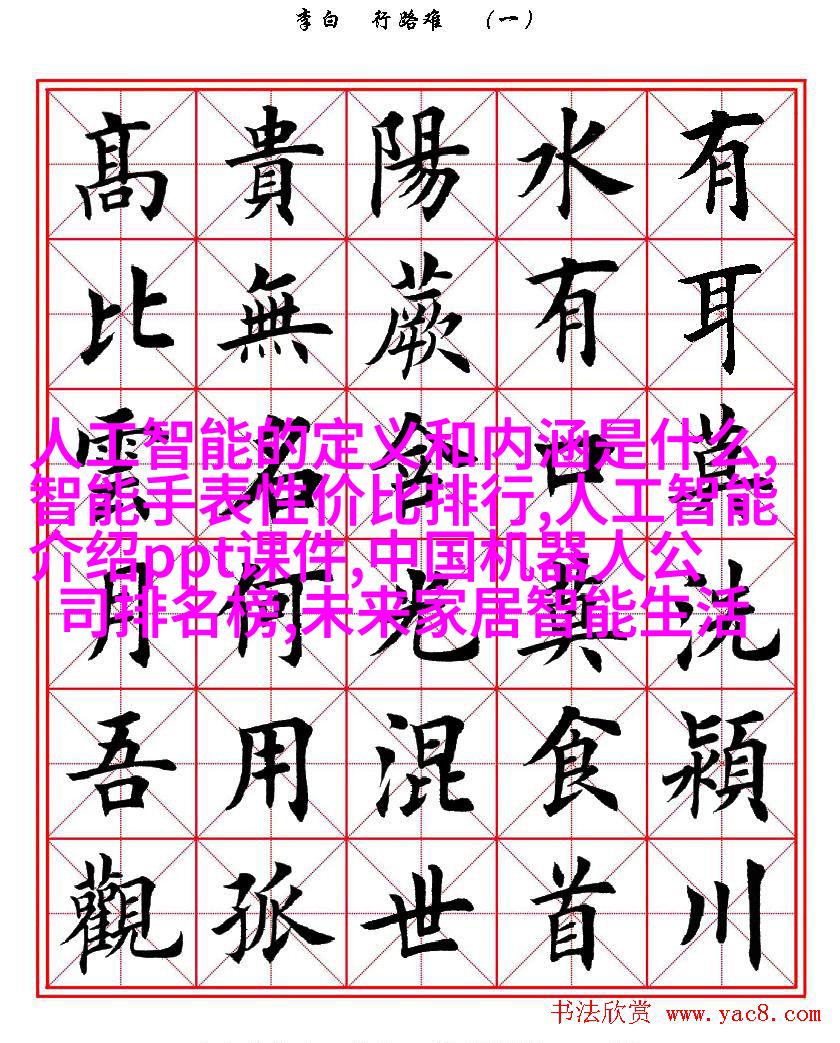 李白 行路难 （一）
有耳莫洗潁川
水有口莫食首
陽蕨含光混世
貴無名何用孤
高比雲月吾觀
人工智能的定义和内涵是什么,
智能手表性价比排行,人工智能
介绍ppt课件,中国机器人公
司排名榜,未来家居智能生活
书法欣赏 www.yac8.com